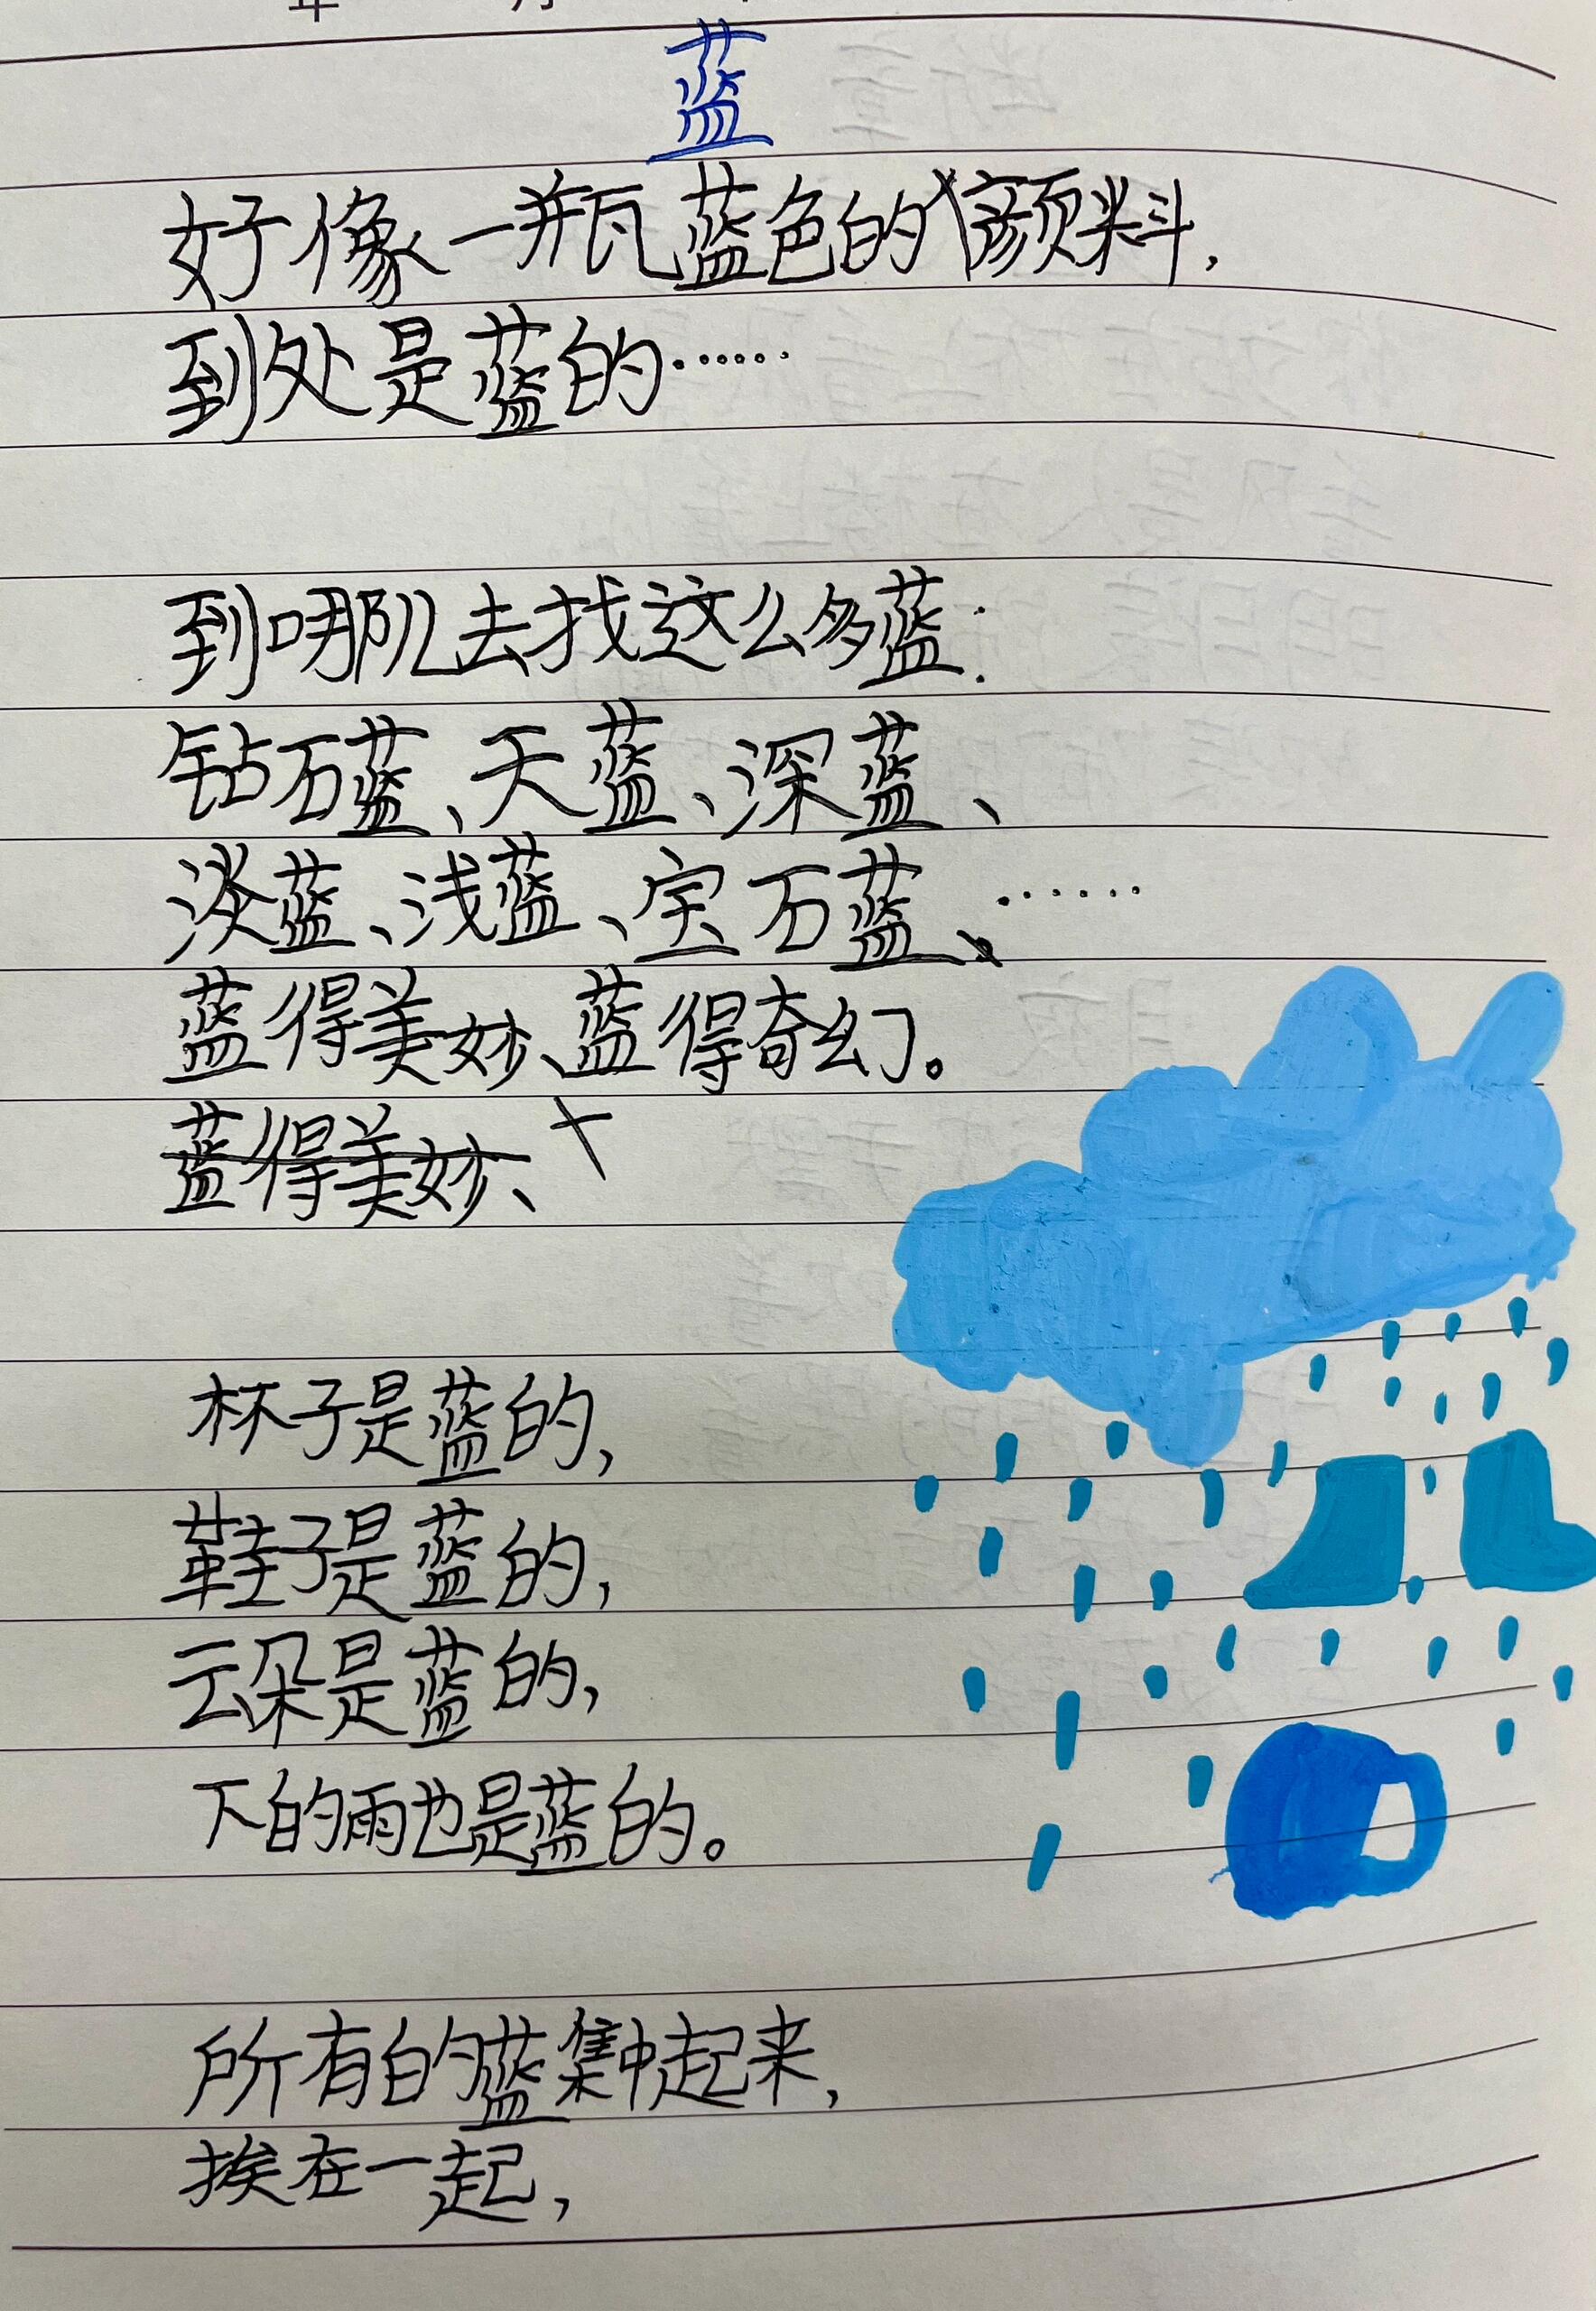 蓝
好像一瓶蓝色的颜料,
到处是蓝的……
到哪儿去找这么多蓝:
钻石蓝、天蓝、深蓝、
淡蓝、浅蓝、宝石蓝、……
蓝得美妙、蓝得奇幻。
蓝得美妙、
杯子是蓝的,
鞋子是蓝的,
云朵是蓝的,
下的雨也是蓝的。
所有的蓝集中起来,
挨在一起,